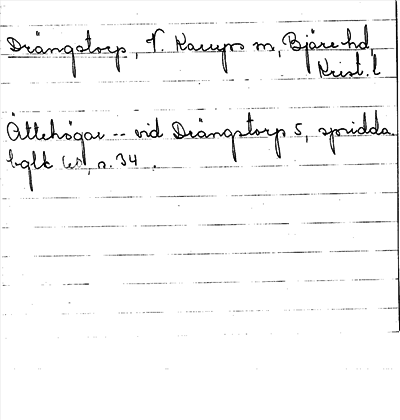 Drängstorp, V. Karups sn, Bjäre hd,
Krist. l
Ättehögar -- vid Drängstorp 5, spridda.
bglk n. 34.